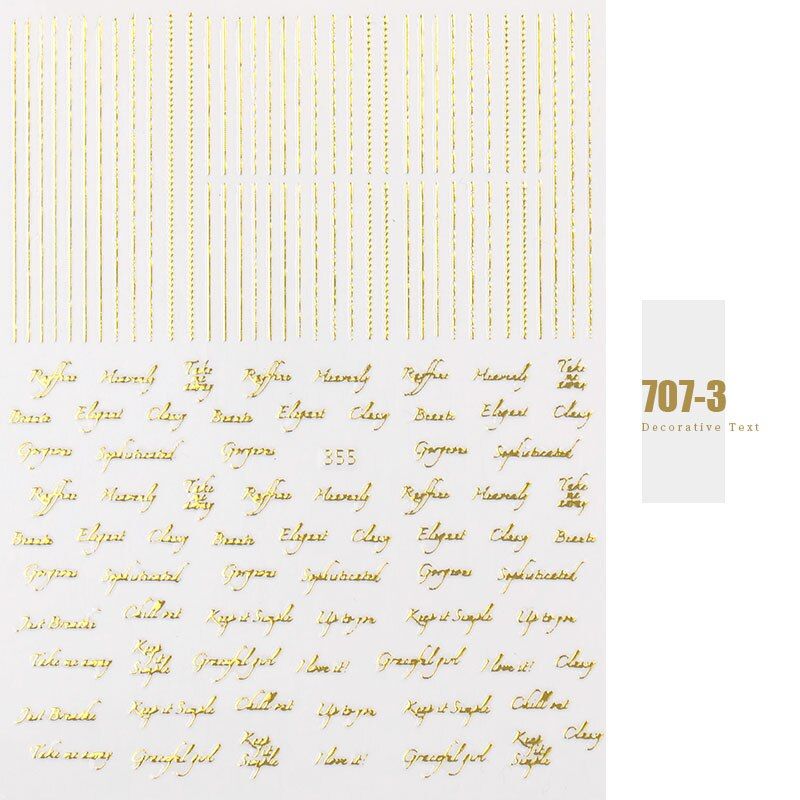 Take me away
Heavenly Heavenly Heavenly
Elegant Classy Elegant Classy Elegant Classy
Gorgeous Sophisticated Gorgeous 355 Gorgeous Sophisticated
Heavenly Take me away Heavenly Heavenly Take me away
Elegant Classy Elegant Classy Elegant Classy
Gorgeous Sophisticated Gorgeous Sophisticated Gorgeous Sophisticated
Just Breathe Chill out Keep it Simple Up to you Keep it Simple Up to you
Take me away Keep it Simple Graceful girl I love it! Graceful girl I love it! Classy
Just Breathe Keep it Simple Chill out Up to you Keep it Simple Chill out
Take me away Graceful girl Keep it Simple I love it! Graceful girl Keep it Simple Classy
707-3
Decorative Text